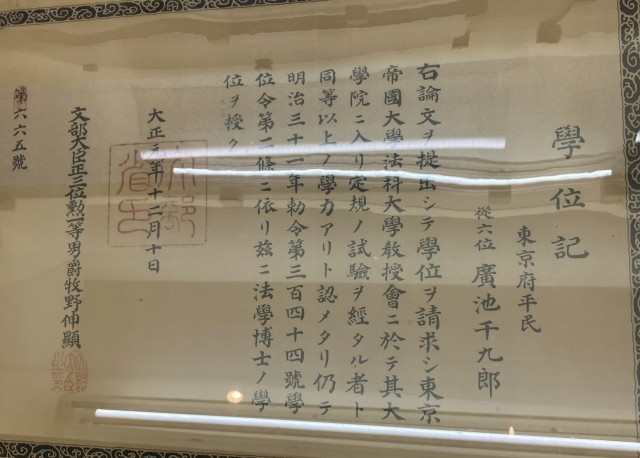 學位記
東京府平民
從六位 廣池千九郎
右論文ヲ提出シテ學位ヲ請求シ東京
帝國大學法科大學教授會ニ於テ其大
學院ニ入リ定規ノ試驗ヲ經タル者ト
同等以上ノ學力アリト認メタリ仍テ
明治三十一年勅令第三百四十四號學
位令第二條ニ依リ茲ニ法學博士ノ學
位ヲ授ク
大正元年十二月十日
文部省印
文部大臣正三位勲一等男爵牧野伸顯
第六六五號